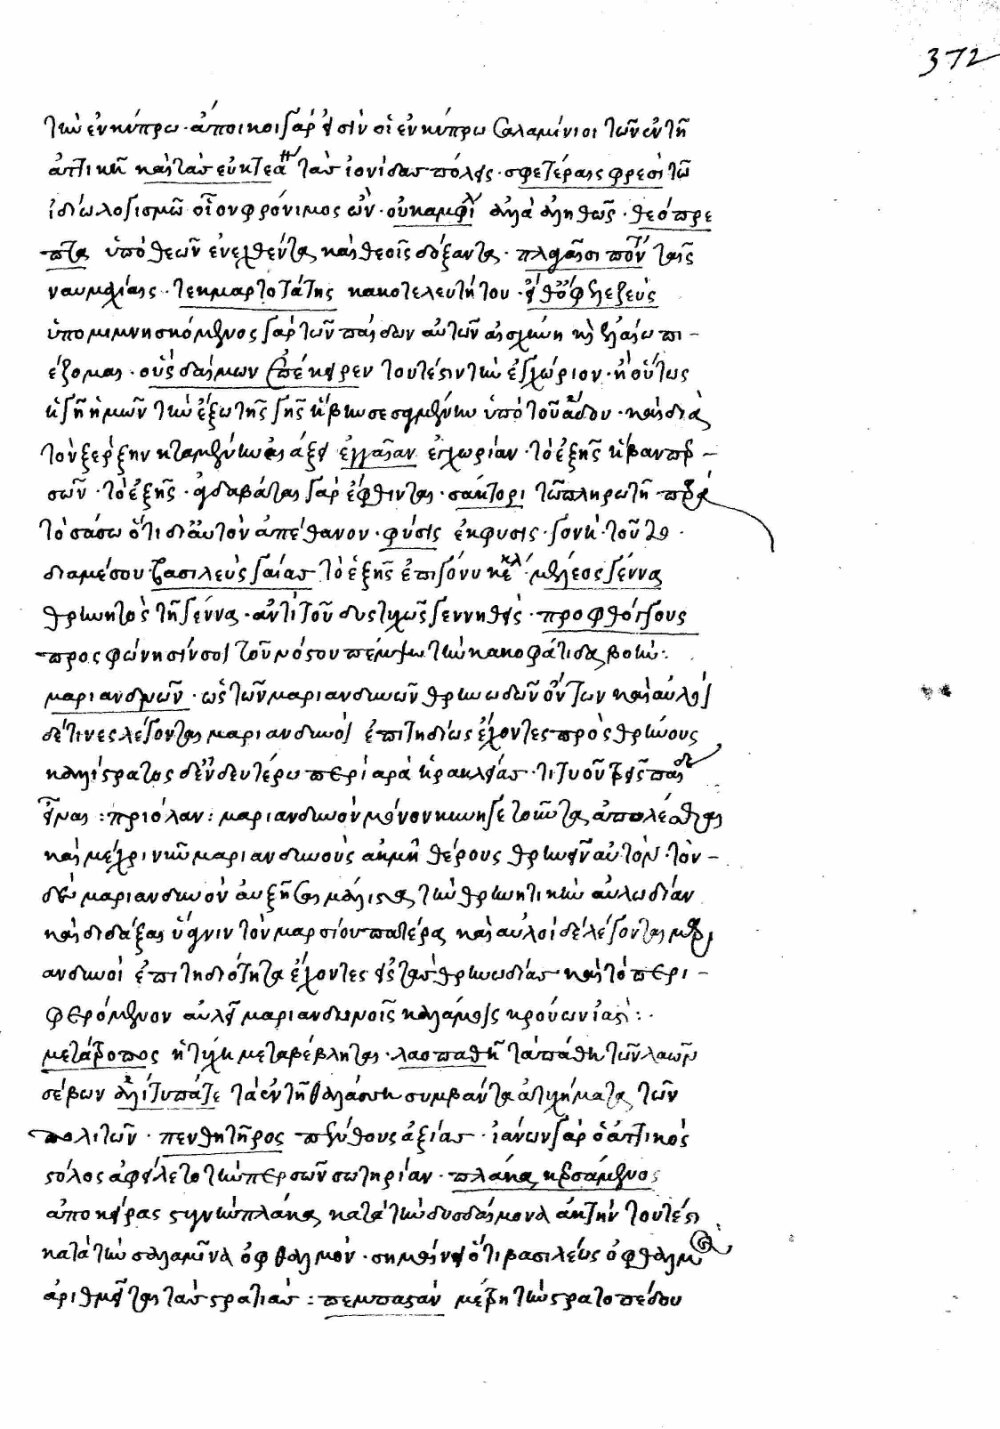 372
τὴν ἐν κύπρω · ἄποικοι γάρ εἰσιν οἱ ἐν κύπρω σαλαμίνιοι τῶν ἐν τῆ
ἀττικῆ καὶ τὰς εὐκτεά τὰς ἰονίδας πόλεις · σφετέραις φρεσὶ τῶ
ἰδίω λογισμῶ οἷον φρόνιμος ὢν · οὐκ ἀμφὶ ἀλλὰ ἀληθῶς · θεόπρε
πτα ὑπὸ θεῶν ἐνεχθέντα καὶ θεοῖς δόξαντα · πλαγαῖσι ποντ ταῖς
ναυμαχίαις · τεκμαρτοτάτης κακοτελευτήτου ·
ὑπομιμνησκόμενος γὰρ τῶν παίδων αὐτῶν αἰσχύνη καὶ πι-
έζομαι · οὓς δαίμων ἐπέκειρεν τουτέστιν τὴν ἐγχώριον · ἢ οὕτως
ἡ γῆ ἡμῶν τὴν ἐξω τῆς γῆς ἥβην σεσαγμένην ὑπὸ τοῦ ἅδου · καὶ διὰ
τὸν ξέρξην κταμένην ἐγγαῖαν ἐγχωρίαν · τὸ ἑξῆς ἥβαν περ-
σῶν · τὸ ἑξῆς · ἀδαβάται γὰρ ἔφθινται · σάκτορι τῶ πληρωτῆ
τὸ σάσω ὅτι δι' αὐτὸν ἀπέθανον · φύσις ἔκφυσις · γονὴ · τοῦτο
διὰ μέσου βασιλεὺς γαίας τὸ ἑξῆς ἐπὶ γόνυ κέκλ · μέλεος γέννα
θρηνητὸς τῆ γέννα · ἀντὶ τοῦ δυστυχῶς γεννηθεὶς · προφθόγγους
προσφώνησίν σοι τοῦ νόστου πέμψω τὴν κακοφάτιδα βοὴν :
μαριανδυνῶν · ὡς τῶν μαριανδυνῶν θρηνωδῶν ὄντων καὶ αὐλοὶ
δέ τινες λέγονται μαριανδυνοὶ ἐπιτηδείως ἔχοντες πρὸς θρήνους
καλλίστρατος δ' ἐν δευτέρω περὶ ἡρακλείας · τιτυοῦ τρεῖς παῖδ
εἶναι : πριόλαν : μαριανδυνὸν μόνον κυνηγετοῦντα ἀπολέσθαι
καὶ μέχρι νῦν μαριανδυνοὺς ἀκμῆ θέρους θρηνεῖν αὐτὸν · τὸν-
δὲ μαριανδυνὸν αὐξῆσαι μάλιστα τὴν θρηνητικὴν αὐλωδίαν
καὶ διδάξαι ὕαγνιν τὸν μαρσύου πατέρα καὶ αὐλοὶ δὲ λέγονται μαρι
ανδυνοὶ ἐπιτηδειότητα ἔχοντες εἰς τὰς θρηνωδίας καὶ τὸ περι-
φερόμενον αὐλεῖ μαριανδυνοῖς καλάμοις κρούων ἰαστί :
μετάτροπος ἡ τύχη μεταβέβληται · λαοπαθῆ τὰ πάθη τῶν λαῶν
σέβων ἁλίτυπά τε τὰ ἐν τῆ θαλάσση συμβάντα ἀτυχήματα τῶν
πολιτῶν · πενθητῆρος πένθους ἀξίας · ἰάνων γὰρ ὁ ἀττικὸς
στόλος ἀφείλετο τὴν περσῶν σωτηρίαν · πλάκα κερσάμενος
ἀποκείρας στυγνὴν πλάκα κατὰ τὴν δυσδαίμονα ἀκτὴν τουτέστι
κατὰ τὴν σαλαμῖνα ὀφθαλμὸν · σημαίνει ὅτι βασιλέως ὀφθαλμω
ἀριθμεῖται τὰς στρατιὰς : πεμπαστὰν μέρη τῶν στρατοπέδου